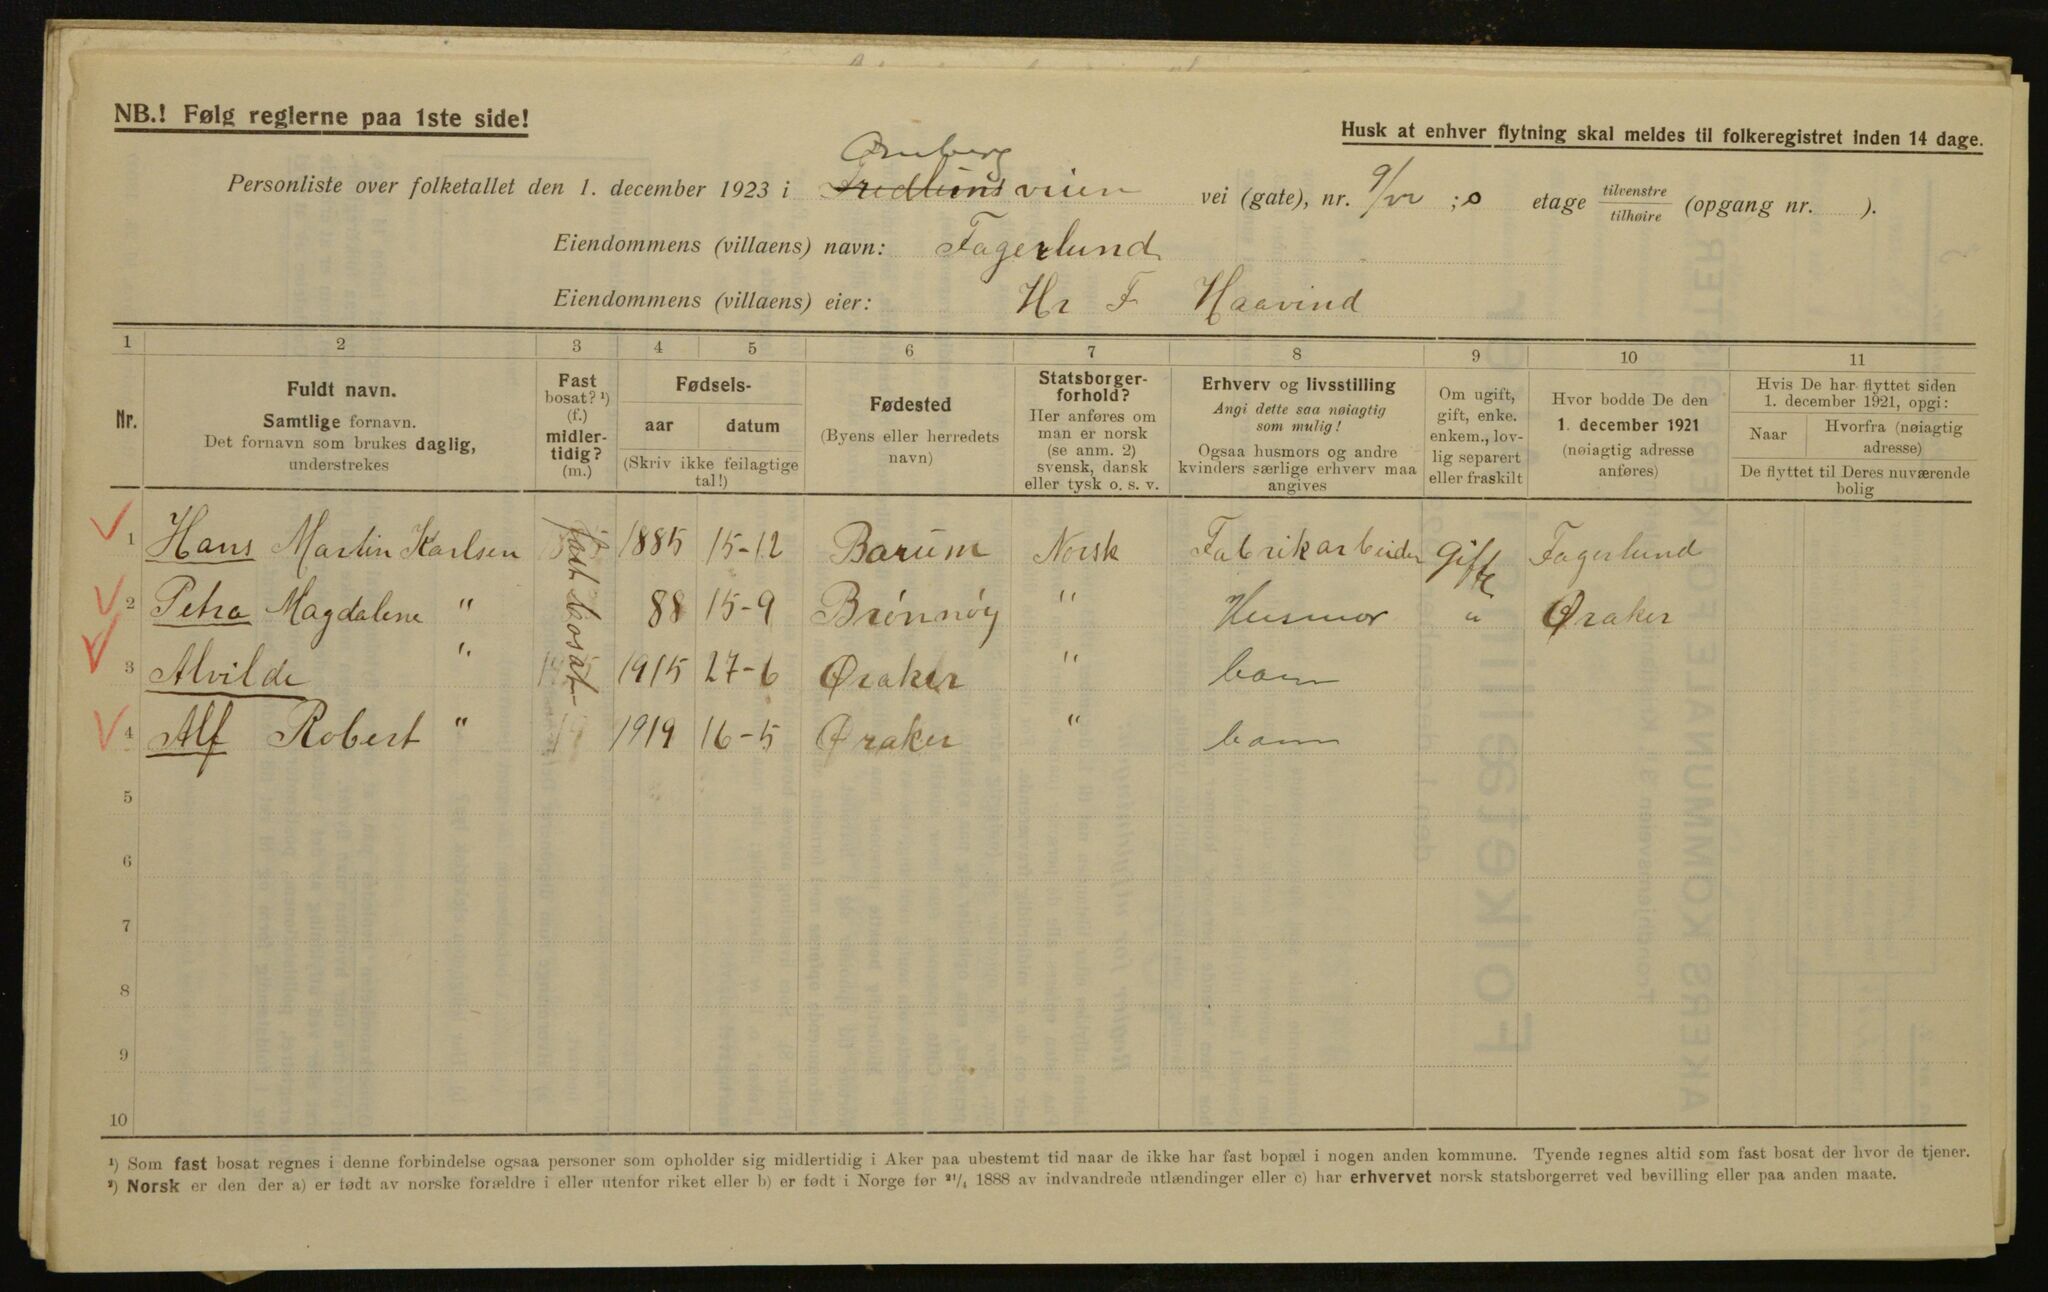 NB.! Følg reglerne paa 1ste side!
Husk at enhver flytning skal meldes til folkeregistret inden 14 dage.
Personliste over folketallet den 1. december 1923 i veien vei (gate), nr. 9/22 ; 0 etage tilvenstre tilhøire (opgang nr. ).
Eiendommens (villaens) navn: Fagerlund
Eiendommens (villaens) eier: Hr F Haavind
1 2 3 4 5 6 7 8 9 10 11
Nr.
Fuldt navn.
Samtlige fornavn.
Det fornavn som brukes daglig,
understrekes
Fast
bosat? ¹)
(f.)
midler-
tidig?
(m.)
Fødsels-
aar datum
(Skriv ikke feilagtige
tal!)
Fødested
(Byens eller herredets
navn)
Statsborger-
forhold?
Her anføres om
man er norsk
(se anm. 2)
svensk, dansk
eller tysk o. s. v.
Erhverv og livsstilling
Angi dette saa nøiagtig
som mulig!
Ogsaa husmors og andre
kvinders særlige erhverv maa
angives
Om ugift,
gift, enke.
enkem., lov-
lig separert
eller fraskilt
Hvor bodde De den
1. december 1921
(nøiagtig adresse
anføres)
Hvis De har flyttet siden
1. december 1921, opgi:
Naar
Hvorfra (nøiagtig
adresse)
De flyttet til Deres nuværende
bolig
1 Hans Martin Karlsen fast bosat 1885 15-12 Barum Norsk Fabrikarbeider Gifte Fagerlund
2 Petra Magdalene " 88 15-9 Brønnøy " Husmor " Øraker
3 Alvilde " 1915 27-6 Øraker " barn
4 Alf Robert " 1919 16-5 Øraker " barn
5
6
7
8
9
10
¹) Som fast bosat regnes i denne forbindelse ogsaa personer som opholder sig midlertidig i Aker paa ubestemt tid naar de ikke har fast bopæl i nogen anden kommune. Tyende regnes altid som fast bosat der hvor de tjener.
²) Norsk er den der a) er født av norske forældre i eller utenfor riket eller b) er født i Norge før 21/4 1888 av indvandrede utlændinger eller c) har erhvervet norsk statsborgerret ved bevilling eller paa anden maate.